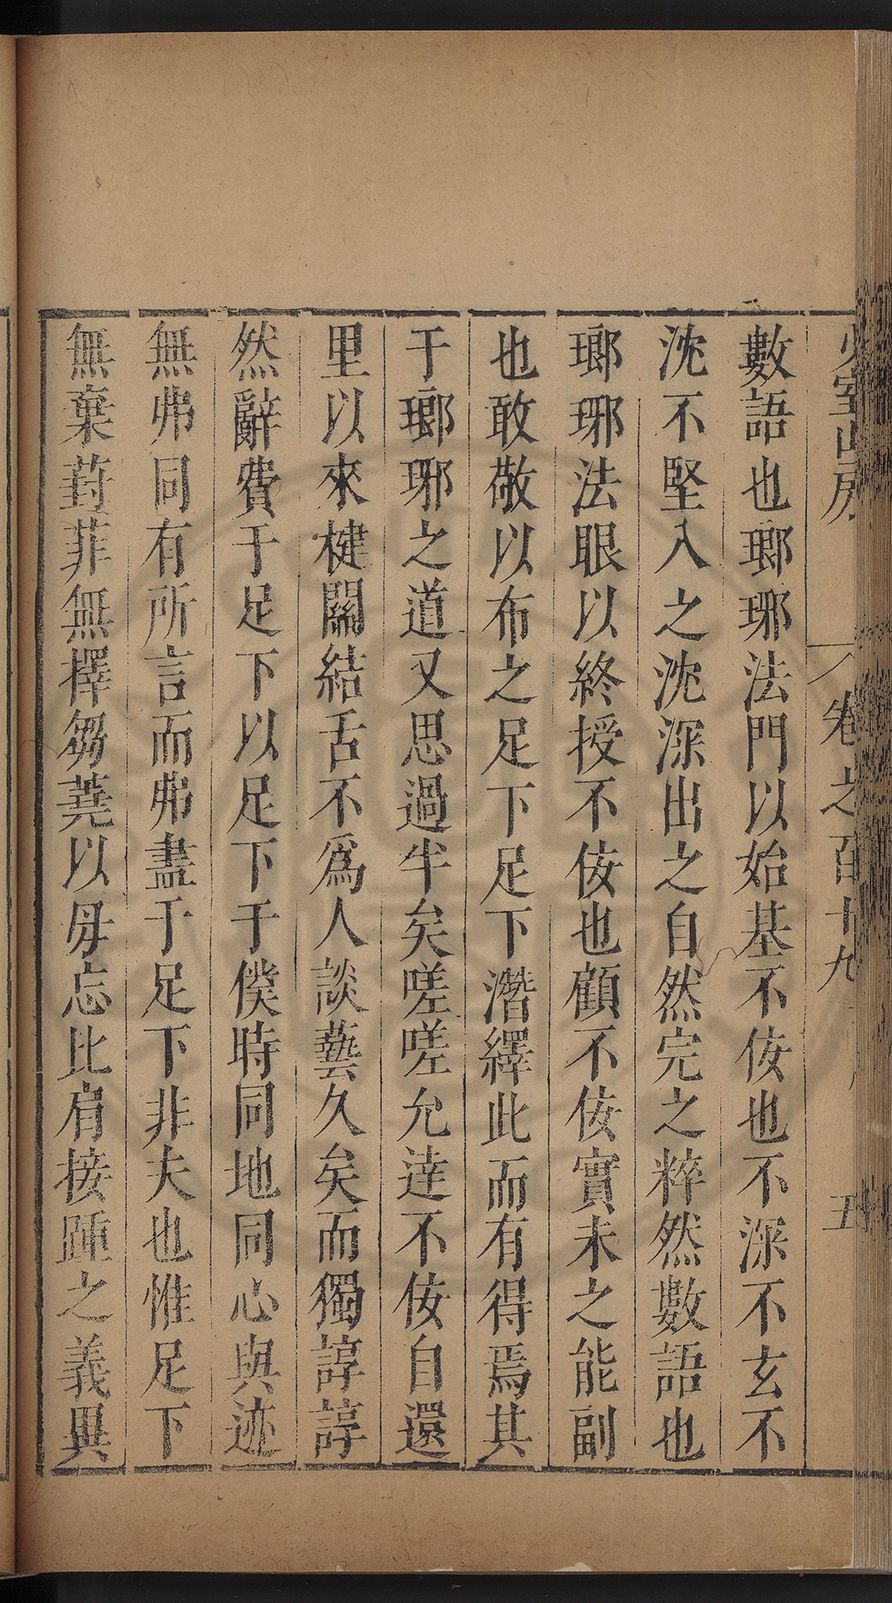 少室山房 卷之百十九 五
數語也瑯琊法門以始基不佞也不深不玄不
沈不堅入之沈深出之自然完之粹然數語也
瑯琊法眼以終授不佞也顧不佞實未之能副
也敢敬以布之足下足下潛繹此而有得焉其
于瑯琊之道又思過半矣嗟嗟允達不佞自還
里以來楗關結舌不爲人談藝久矣而獨諄諄
然辭費于足下以足下于僕時同地同心與迹
無弗同有所言而弗盡于足下非夫也惟足下
無棄葑菲無擇芻蕘以毋忘比肩接踵之義異